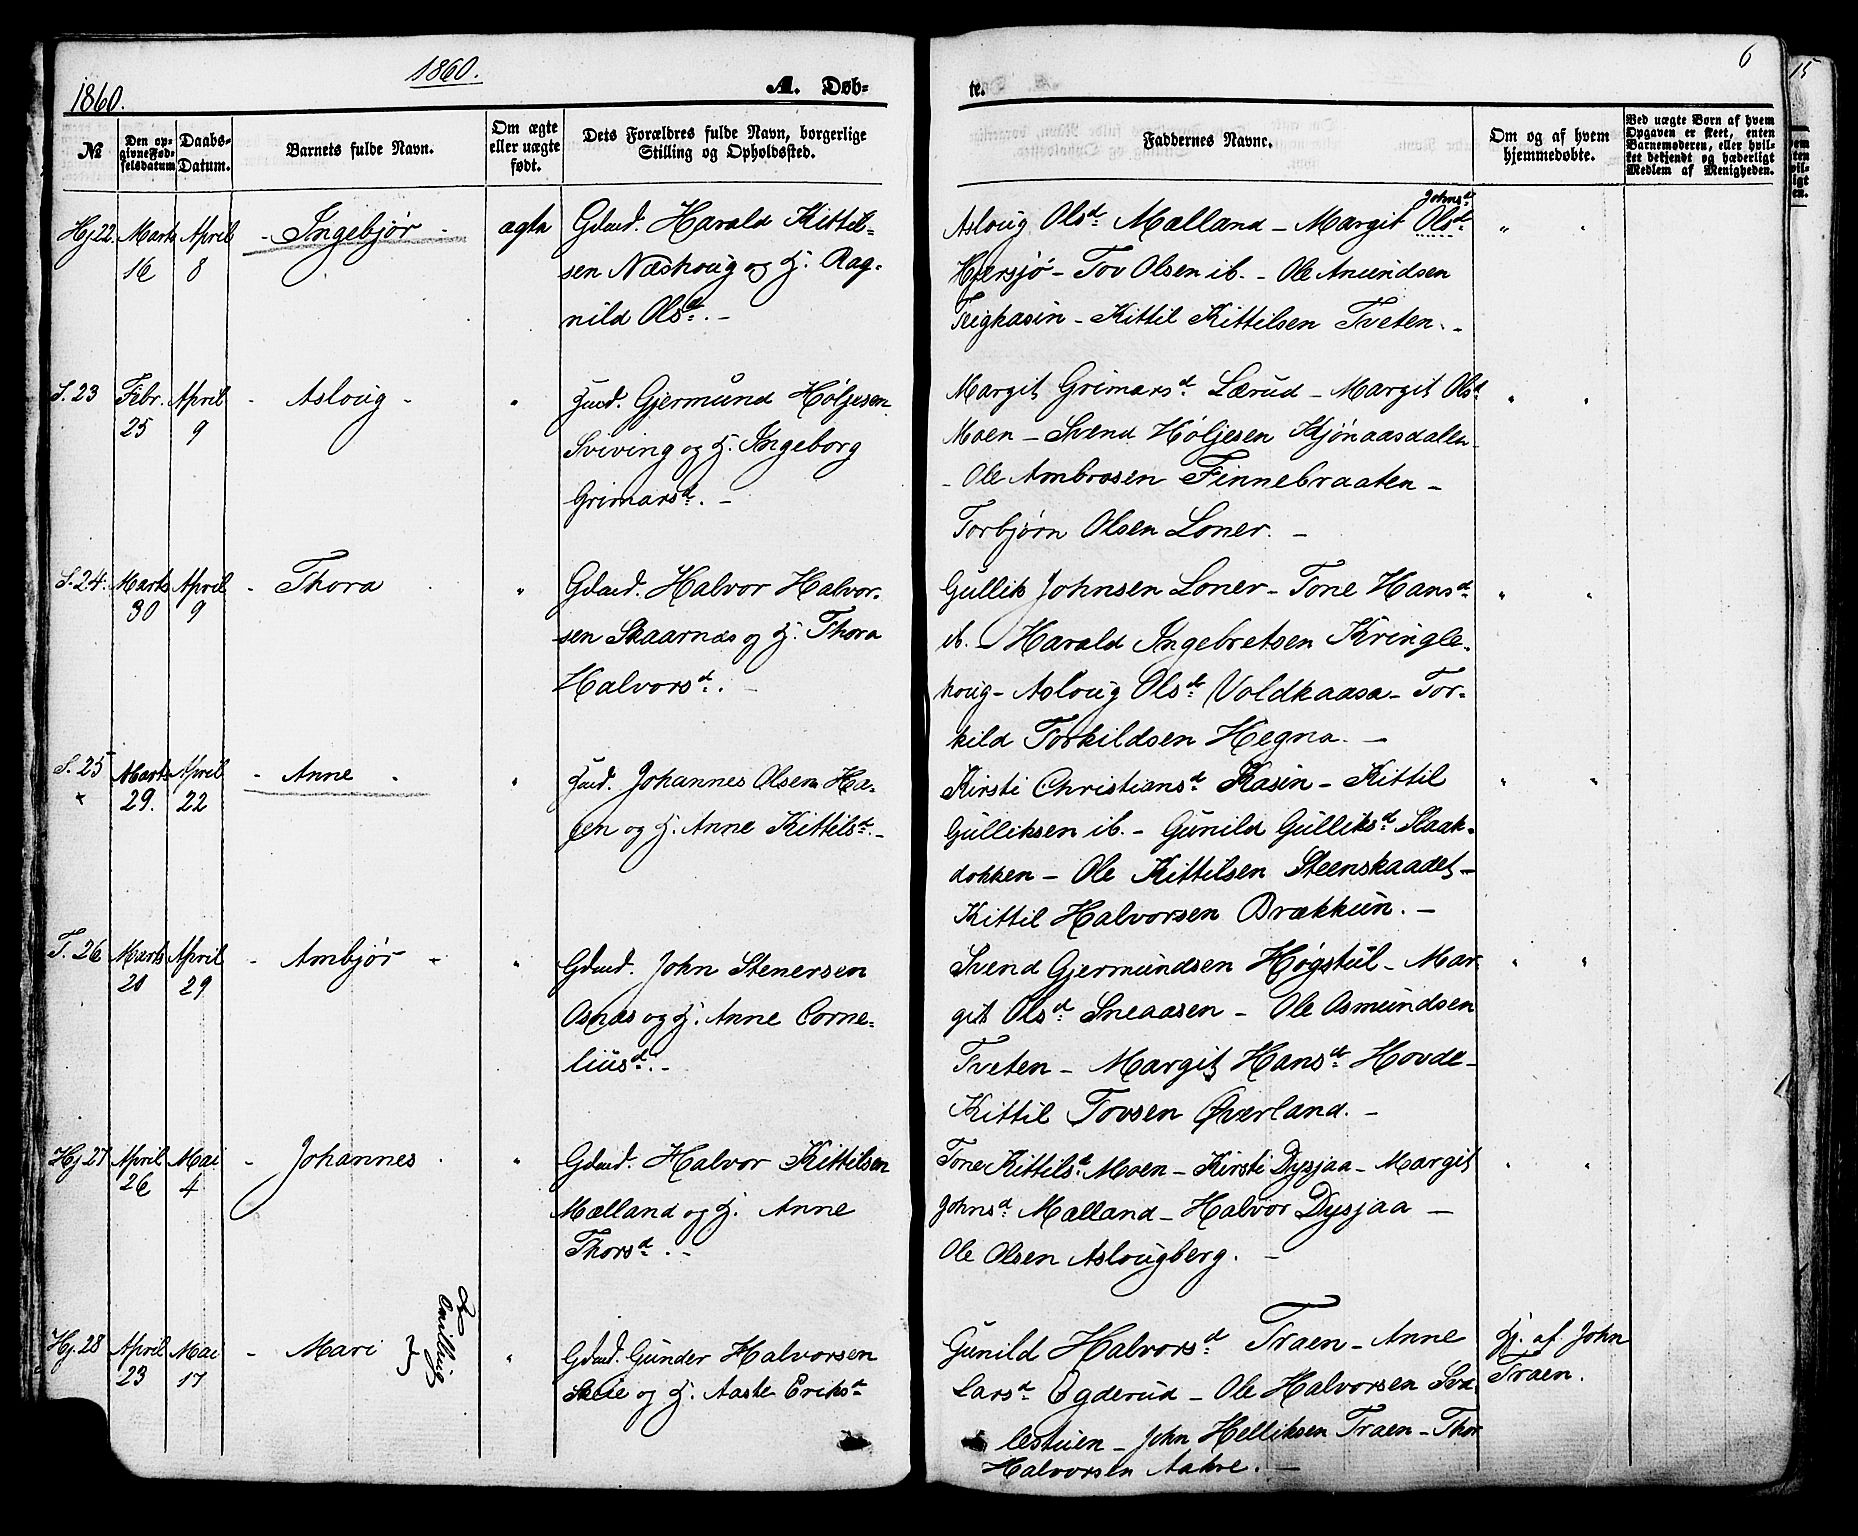 1860.
1860.
A. Døb-
te.
6
15
№
Den op-
givne Fød-
selsdatum
Daabs-
Datum.
Barnets fulde Navn.
Om ægte
eller uægte
født.
Dets Forældres fulde Navn, borgerlige
Stilling og Opholdssted.
Faddernes Navne.
Om og af hvem
hjemmedøbte.
Ved uægte Børn af hvem
Opgaven er skeet, enten
Barnemoderen, eller hvil-
ket bekjendt og hæderligt
Medlem af Menigheden.
Hj 22. Marts 16 April 8 - Ingebjør - ægta
Gdmd. Harald Kittil-
sen Næshoug og H. Rag-
nild Olsd. -
Johnsd
Asloug Olsd Malland - Margit Olsd " "
Hjersjø - Tov Olsen ib. - Ole Anundsen
Teigkasin - Kittil Kittilsen Tveten. -
S. 23 Febr. 25 April 9 - Asloug - "
Husd. Gjermund Høljesen
Sviving og H. Ingeborg
Grimarsd. -
Margit Grimarsd Lærud - Margit Olsd " "
Moen - Svend Høljesen Kjønaasdalen
- Ole Ambrosen Finnebraaten -
Torbjørn Olsen Loner. -
S. 24. Marts 30 April 9 - Thora "
Gdmd. Halvor Halvor-
sen Skaarnæs og H. Thora
Halvorsd. -
Gullik Johnsen Loner - Tone Hansd " "
ib. - Harald Ingebretsen Kringle-
houg - Asloug Olsd Voldkaasa - Tor-
kild Torkildsen Hegna. -
S. 25 Marts 29. April 22 - Anne - "
Husd. Johannes Olsen Ha-
gen og H. Anne Kittilsd. -
Kirsti Christiansd Kasin - Kittil " "
Gulliksen ib. - Gunild Gulliksd Slaak-
dokken - Ole Kittilsen Steenskaadet -
Kittil Halvorsen Brækkun. -
T. 26 Marts 20 April 29 - Ambjør - "
Gdmd. John Stenersen
Osnæs og H. Anne Corne-
liusd. -
Svend Gjermundsen Høgstul - Mar- " "
git Olsd Sneaasen - Ole Osmundsen
Tveten - Margit Hansd Hovde -
Kittil Tovsen Øverland. -
Hj 27 April 26 Mai 4 - Johannes - "
Gdmd. Halvor Kittilsen
Mælland og H. Anne
Thorsd. -
Tone Kittilsd. Moen - Kirsti Dysjaa - Margit " "
Johnsd Malland - Halvor Dysjaa -
Ole Olsen Aslougberg. -
Hj. 28 April 23 Mai 17 - Mari "
Gdmd. Gunder Halvorsen
og H. Aaste Eriksd
Gunild Halvorsd Traen - Anne
Larsd Ogderud - Ole Halvorsen Sva-
lestuen - John Helliksen Traen - Thor
Halvorsen Aakre. -
Hj. af John
Traen.